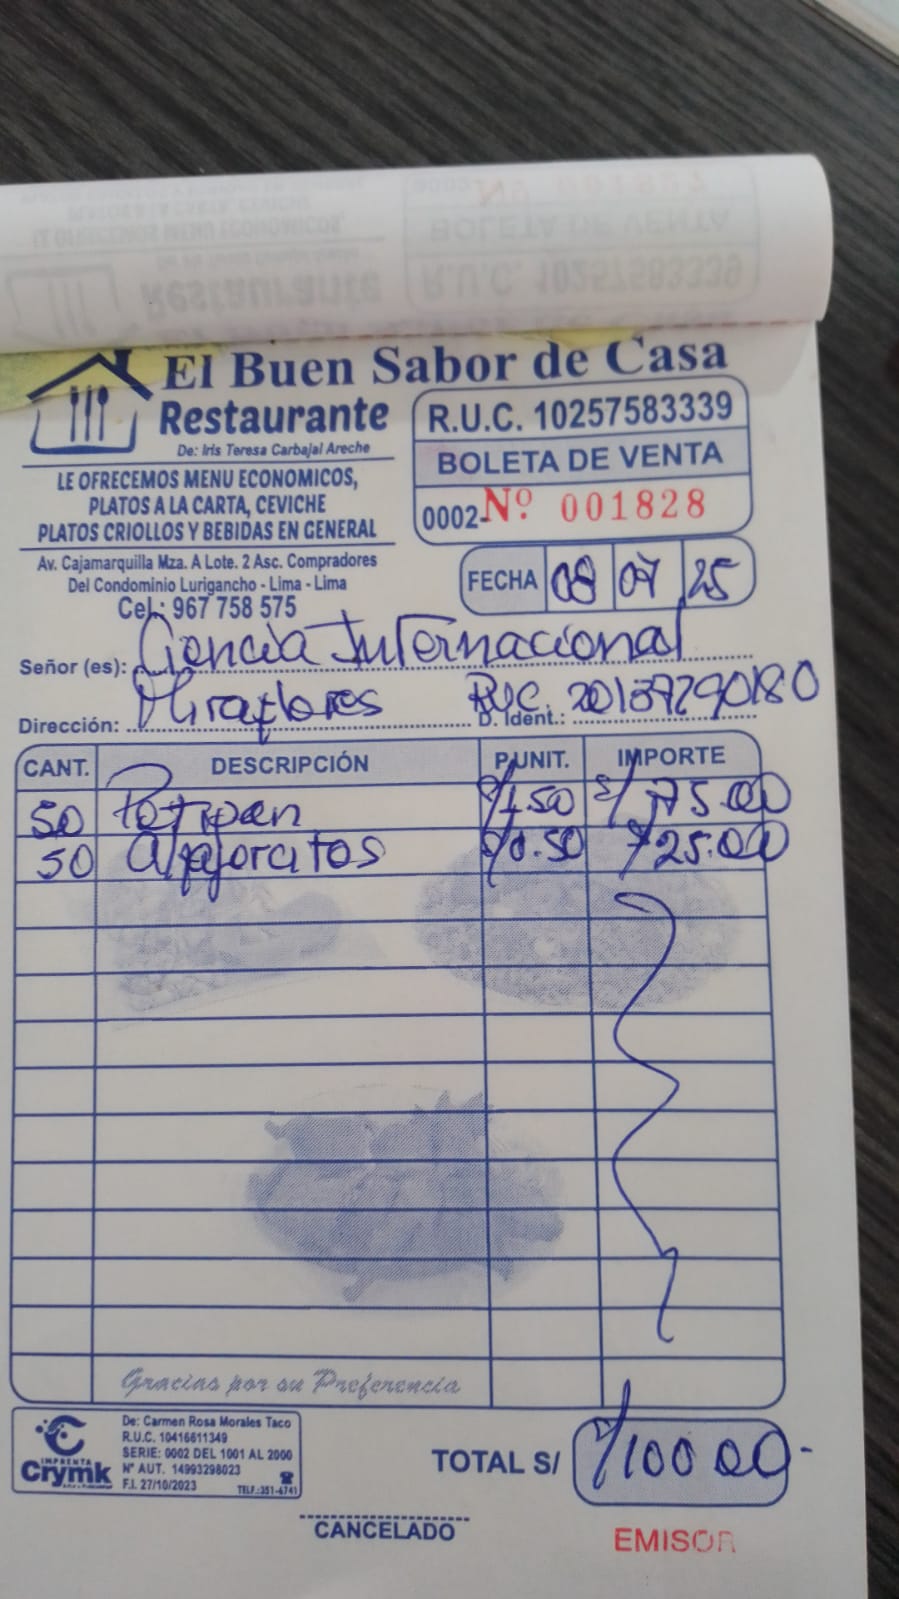 El Buen Sabor de Casa
Restaurante
De: Iris Teresa Carbajal Areche
LE OFRECEMOS MENU ECONOMICOS,
PLATOS A LA CARTA, CEVICHE
PLATOS CRIOLLOS Y BEBIDAS EN GENERAL
Av. Cajamarquilla Mza. A Lote. 2 Asc. Compradores
Del Condominio Lurigancho - Lima - Lima
Cel.: 967 758 575
R.U.C. 10257583339
BOLETA DE VENTA
0002-Nº. 001828
FECHA 08 07 25
Señor (es): Ciencia Internacional
Dirección: Miraflores D. Ident.: RUC. 20137290180
CANT. DESCRIPCIÓN P.UNIT. IMPORTE
50 Petipan S/1.50 S/75.00
50 Alfajorcitos S/0.50 S/25.00
Gracias por su Preferencia
IMPRENTA
Crymk
De: Carmen Rosa Morales Taco
R.U.C. 10416611349
SERIE: 0002 DEL 1001 AL 2000
Nº AUT. 14993298023
F.I. 27/10/2023 TELF.:351-6741
TOTAL S/ S/100.00-
CANCELADO
EMISOR